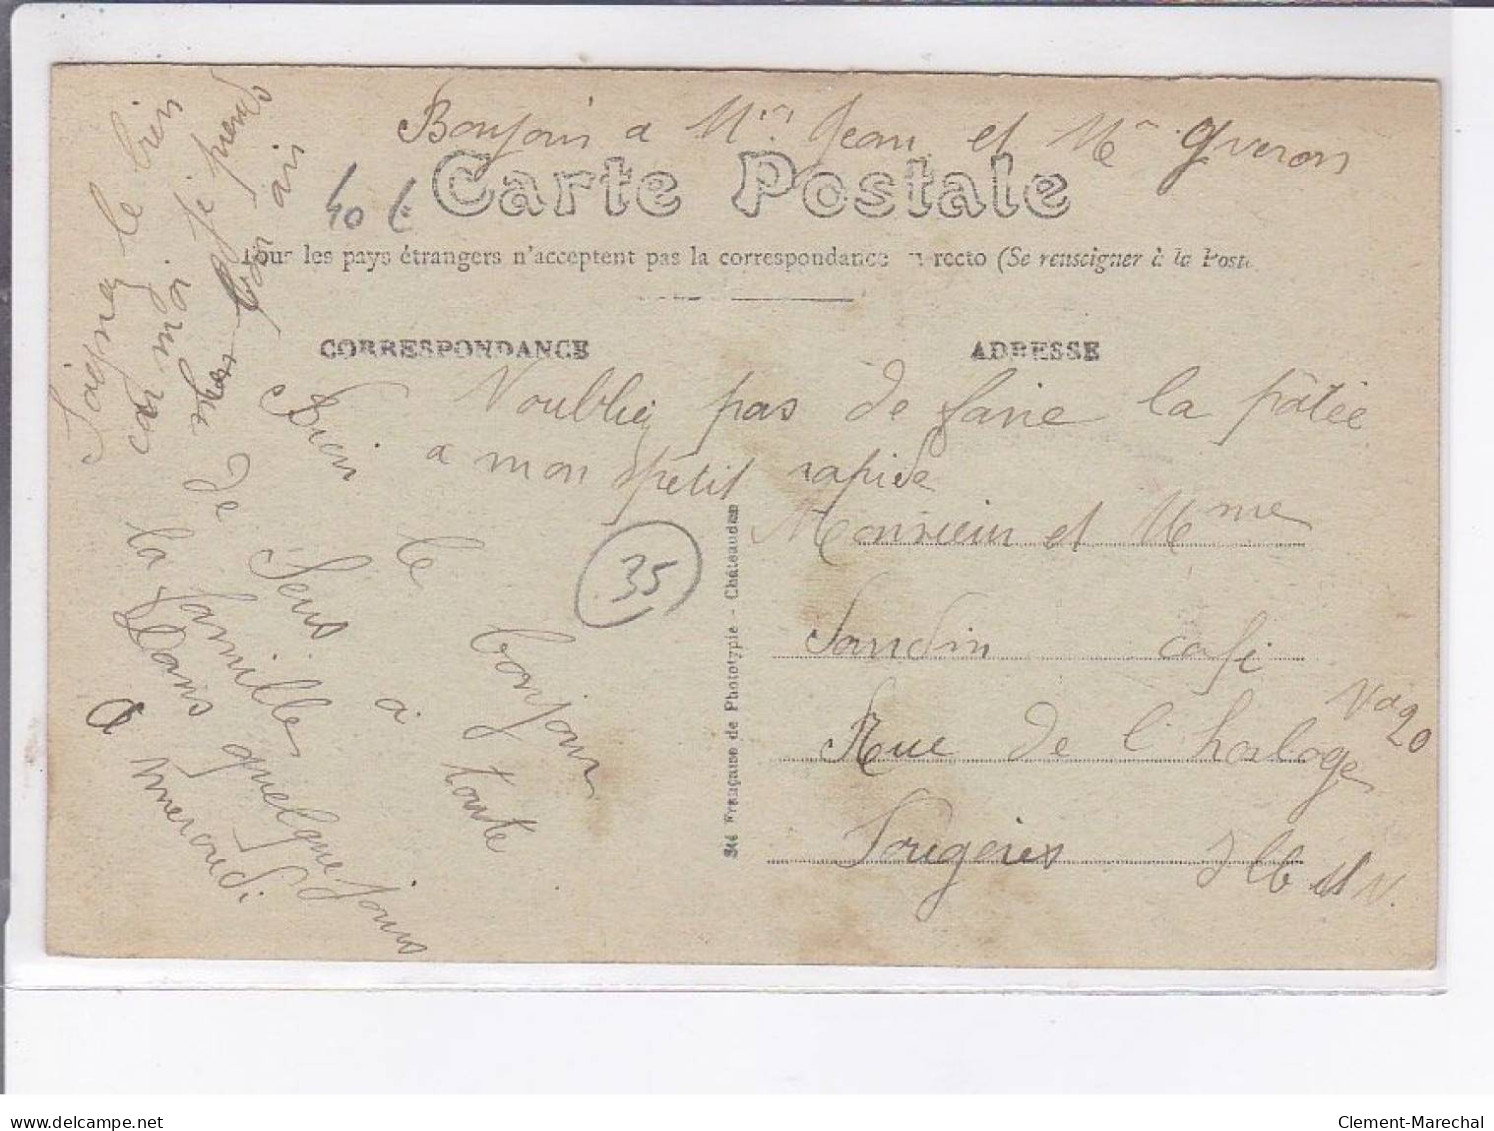 Bonjour a Mr Jean et Me Gueron
40 €
Carte Postale
Tous les pays étrangers n'acceptent pas la correspondance au recto (Se renseigner à la Poste
CORRESPONDANCE
ADRESSE
Noublié pas de faire la pâtée
a mon petit rapide
Soignez le bien
car moi je prends
de bon air
Bien le bonjour
de Sens à toute
la famille
Dans quelque jours
a mercredi
35
Sté Française de Phototypie - Châteaudun
Monsieur et Mme
café
Rue de l'horloge
Nd 20
Fougères
Ille et V.
delcampe.net
Clement-Marechal